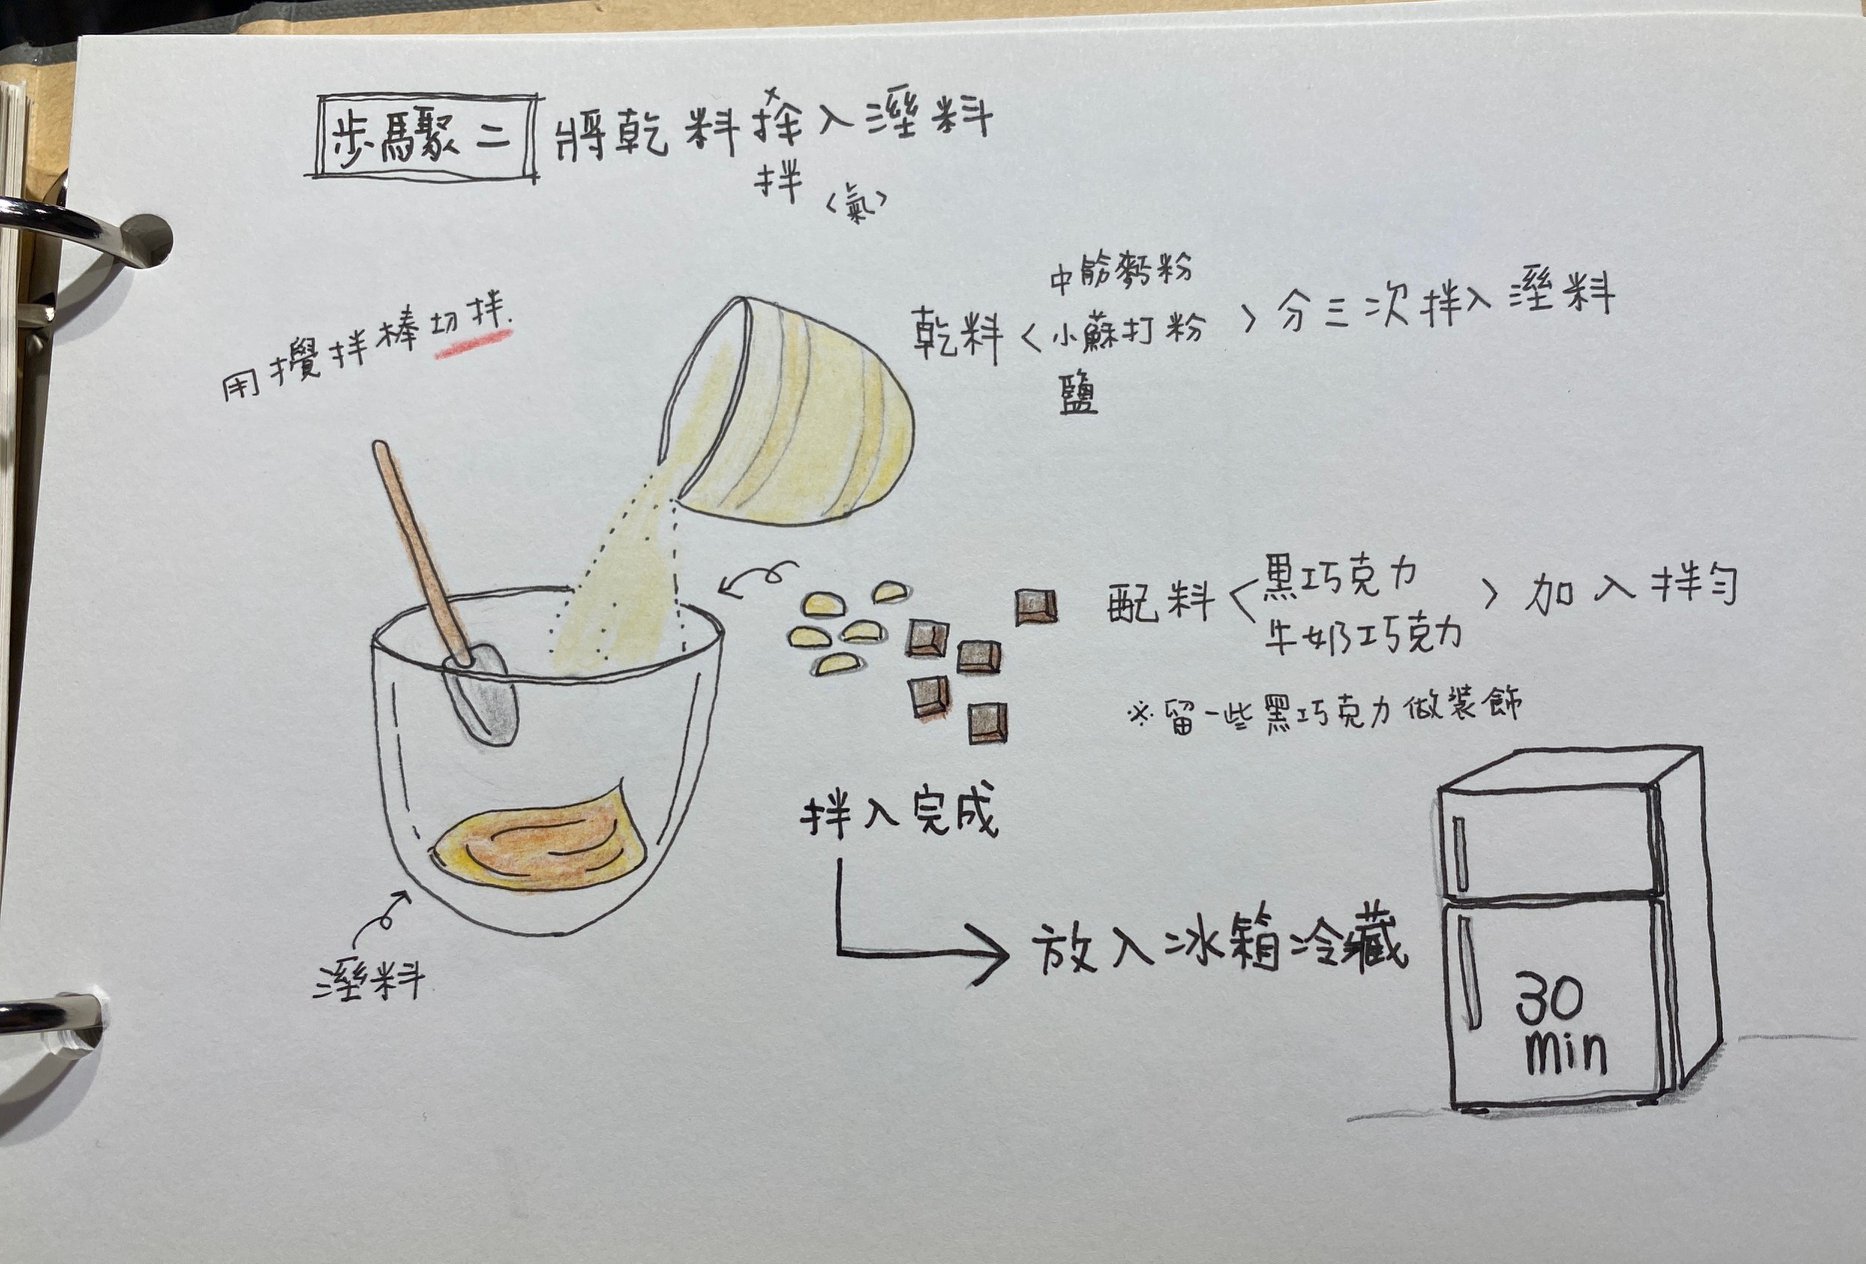 步驟二 將乾料搾入溼料
拌
<氣>
用攪拌棒切拌.
中筋麵粉
乾料<小蘇打粉>分三次拌入溼料
鹽
黑巧克力
配料< >加入拌勻
牛奶巧克力
※留一些黑巧克力做裝飾
拌入完成
放入冰箱冷藏
溼料
30
min